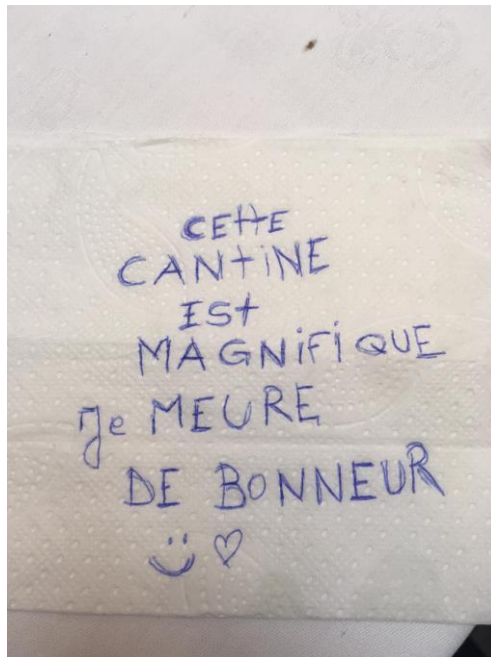 CETTE
CANTINE
EST
MAGNIFIQUE
Je MEURE
DE BONNEUR